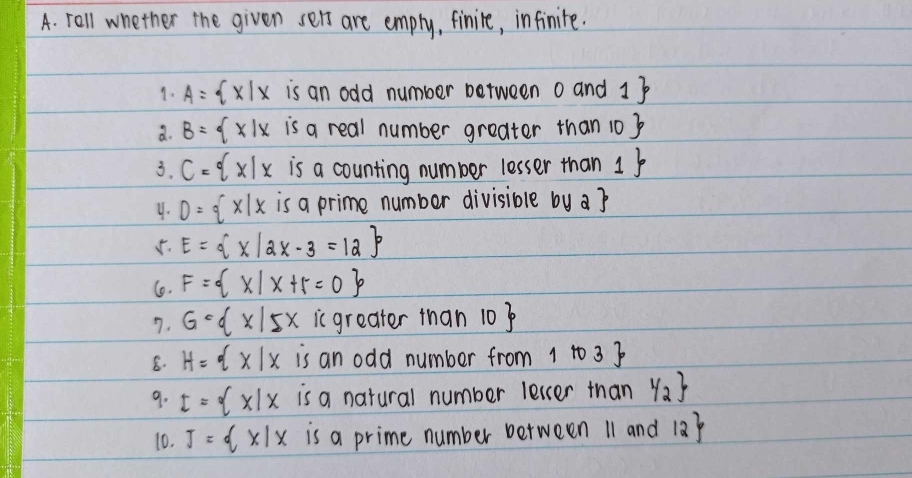 A. Tell whether the given sets are empty, finite, infinite.
1. A = {x|x is an odd number between 0 and 1}
2. B = {x|x is a real number greater than 10}
3. C = {x|x is a counting number lesser than 1}
4. D = {x|x is a prime number divisible by 2}
5. E = {x|2x-3 = 12}
6. F = {x|x+5=0}
7. G = {x|5x is greater than 10}
8. H = {x|x is an odd number from 1 to 3}
9. I = {x|x is a natural number lesser than 1/2}
10. J = {x|x is a prime number between 11 and 12}